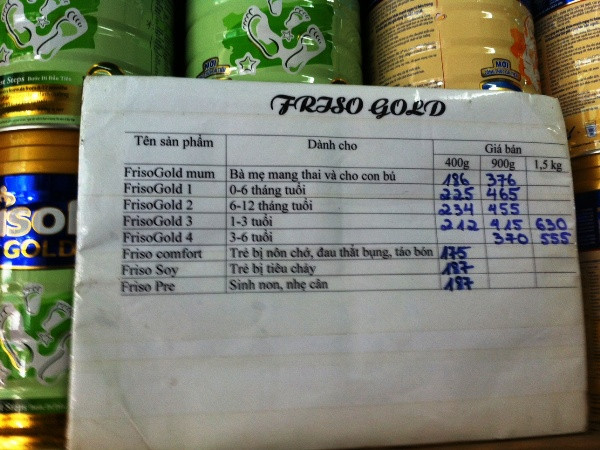 Steps Bước Đi Đầu Tiên
MỚI
MỚI
FRISO GOLD
Tên sản phẩm Dành cho Giá bán
400g 900g 1,5 kg
FrisoGold mum Bà mẹ mang thai và cho con bú 186 376
FrisoGold 1 0-6 tháng tuổi 225 465
FrisoGold 2 6-12 tháng tuổi 234 455
FrisoGold 3 1-3 tuổi 212 415 630
FrisoGold 4 3-6 tuổi 370 555
Friso comfort Trẻ bị nôn chớ, đau thắt bụng, táo bón 175
Friso Soy Trẻ bị tiêu chảy 187
Friso Pre Sinh non, nhẹ cân 187
GOLD